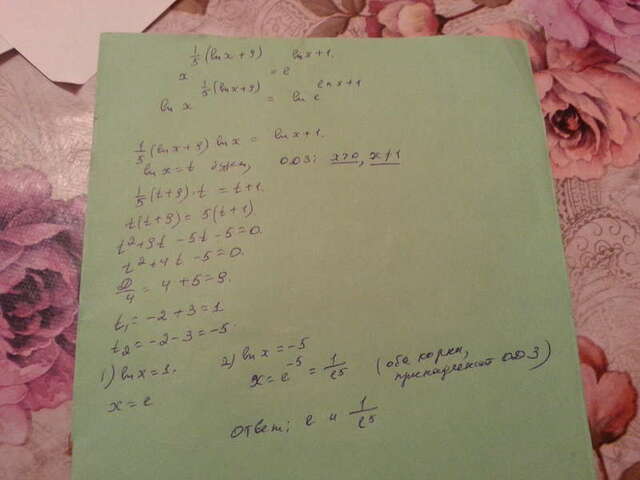 x^(1/5(ln x + 9)) = e^(ln x + 1).
ln x^(1/5(ln x + 9)) = ln e^(ln x + 1)
1/5 (ln x + 9) ln x = ln x + 1.
ln x = t ОДЗ: x > 0, x ≠ 1
1/5 (t + 9) · t = t + 1.
t(t + 9) = 5(t + 1)
t² + 9t - 5t - 5 = 0.
t² + 4t - 5 = 0.
D/4 = 4 + 5 = 9.
t₁ = -2 + 3 = 1
t₂ = -2 - 3 = -5.
1) ln x = 1.
x = e
2) ln x = -5
x = e⁻⁵ = 1/e⁵ (оба корня, принадлежат ОДЗ)
Ответ: e и 1/e⁵